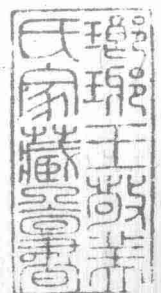 瑯琊王敬美
氏家藏圖書